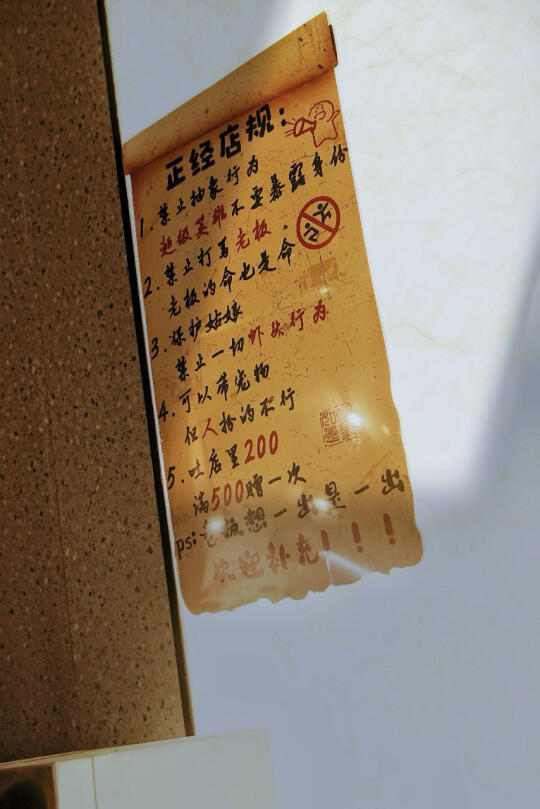 正经店规:
1.禁止抽象行为
超级英雄不要暴露身份
2.禁止打骂老板
老板的命也是命
3.保护姑娘
禁止一切虾头行为
4.可以带宠物
但人扮的不行
5.吐店里200
满500赠一次
ps:老板想一出是一出
欢迎补充!!!